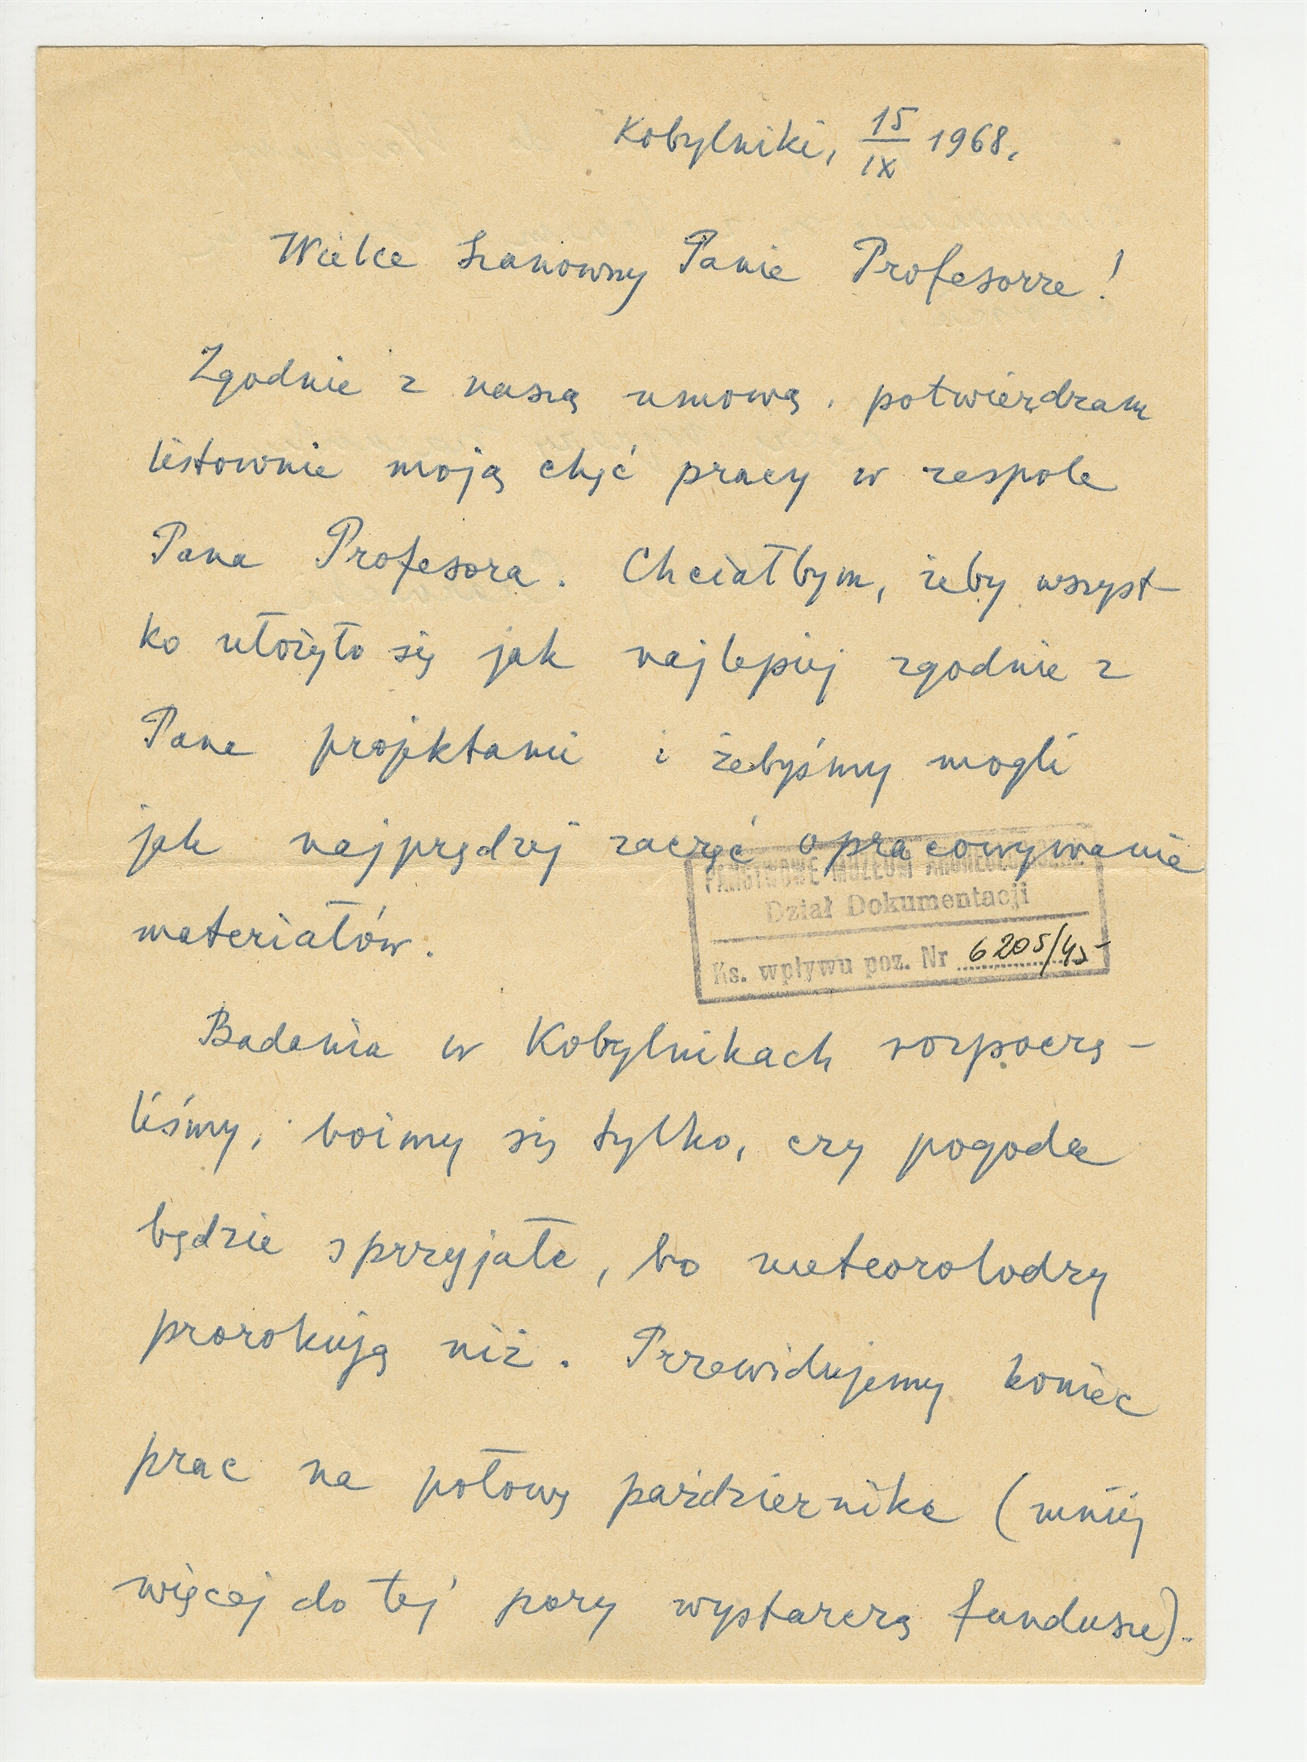 Kobylniki, 15/IX 1968.
Wielce Szanowny Panie Profesorze!
Zgodnie z naszą umową, potwierdzam
listownie moją chęć pracy w zespole
Pana Profesora. Chciałbym, żeby wszyst-
ko ułożyło się jak najlepiej zgodnie z
Pana projektami i żebyśmy mogli
jak najprędzej zacząć opracowywanie
materiałów.
PAŃSTWOWE MUZEUM ARCHEOLOGICZNE
Dział Dokumentacji
Ks. wpływu poz. Nr 6205/45
Badania w Kobylnikach rozpoczę-
liśmy, boimy się tylko, czy pogoda
będzie sprzyjała, bo meteorolodzy
prorokują niż. Przewidujemy koniec
prac na połowę października (mniej
więcej do tej pory wystarczą fundusze).